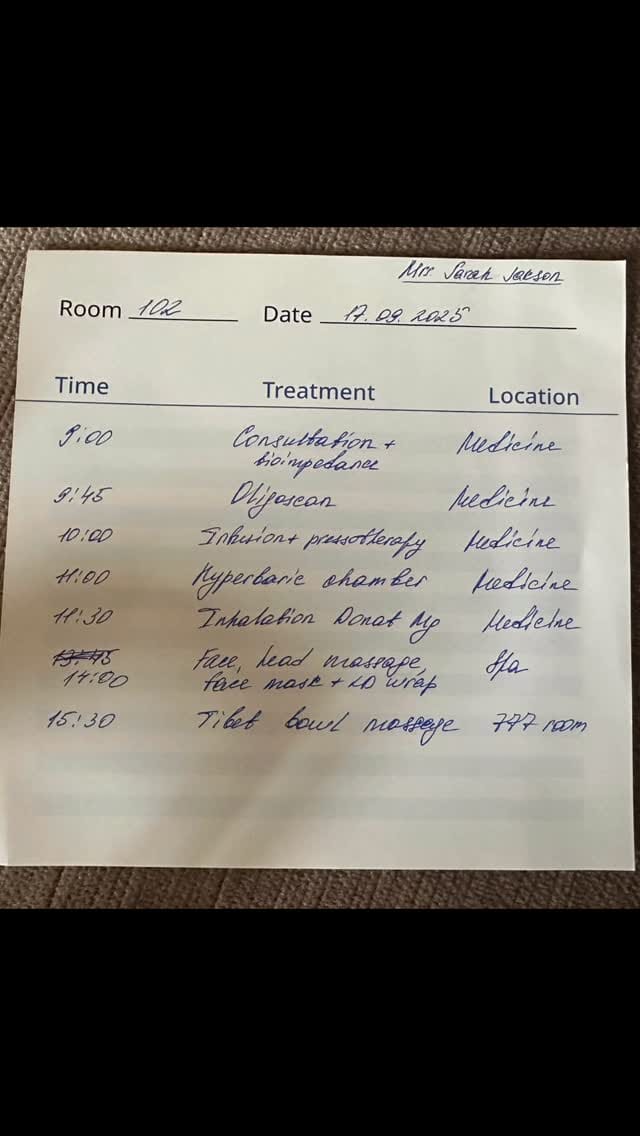 Mrr Sarah Jakson
Room 102 Date 17.09.2025
Time Treatment Location
9:00 Consultation + Medicine
bioimpedance
9:45 Oligoscan Medicine
10:00 Infusion + pressotherapy Medicine
11:00 Hyperbaric chamber Medicine
11:30 Inhalation Donat Mg Medicine
13:45 Face, head massage, Spa
14:00 face mask + LD wrap
15:30 Tibet bowl massage 777 room